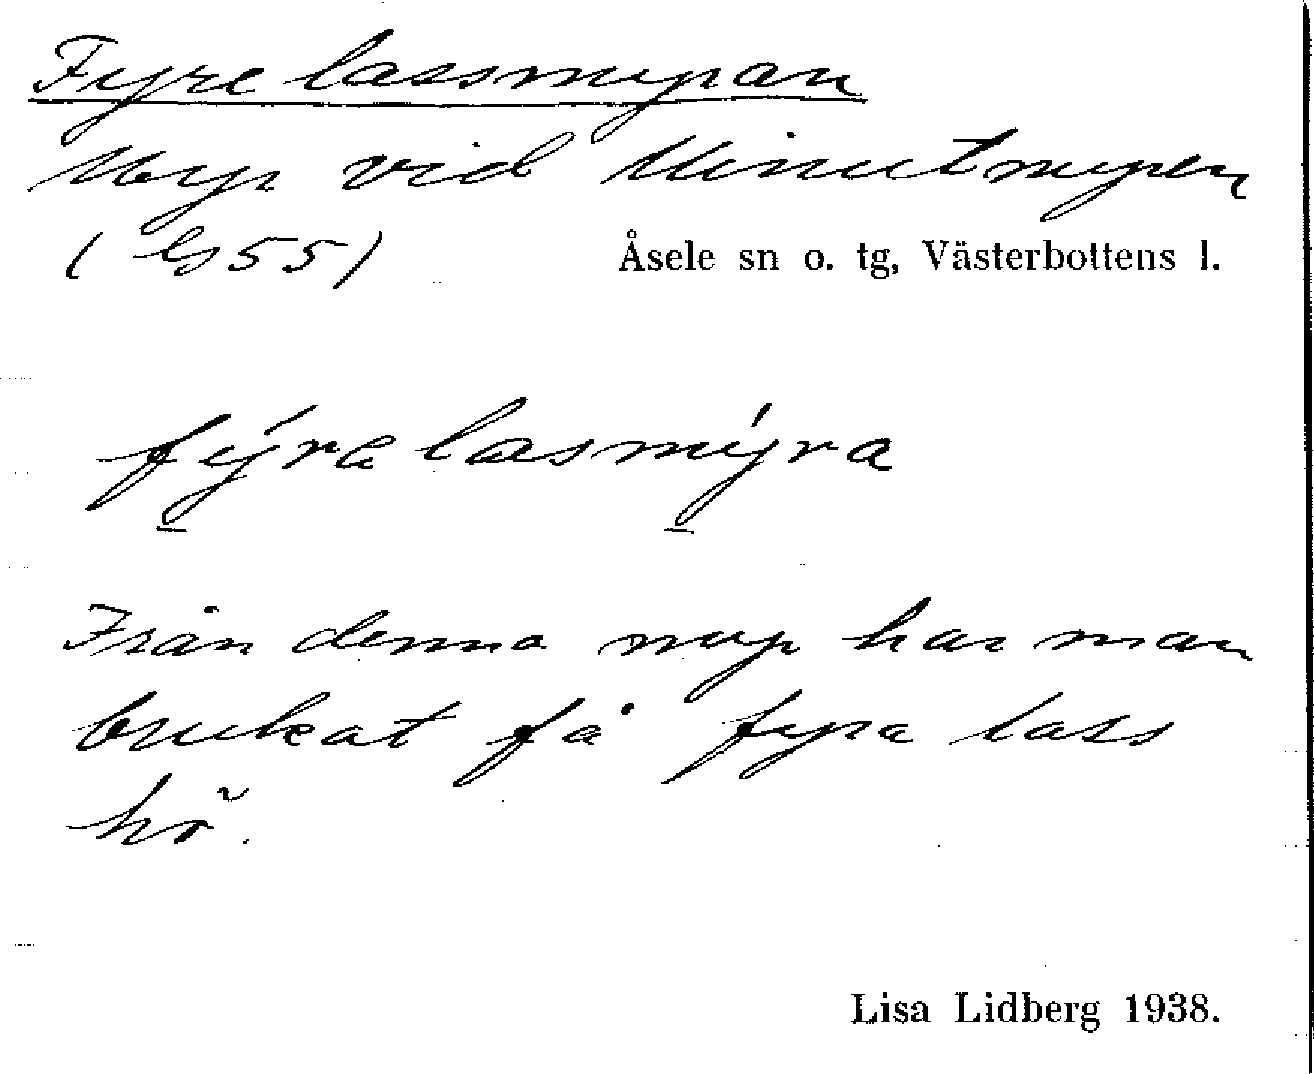 Fyrelassmyran
Myr vid Minutmyren
( G 55) Åsele sn o. tg, Västerbottens l.
fýralasmýra
Från denna myr har man
brukat få fyra lass
hö.
Lisa Lidberg 1938.